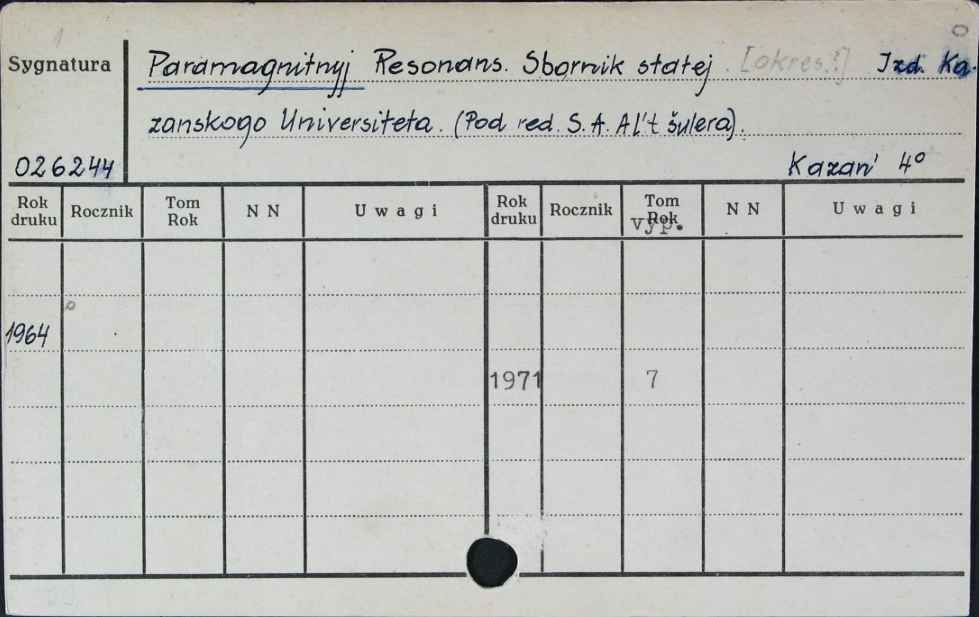 Sygnatura Paramagnitnyj Resonans. Sbornik statej [okres.!] Izd. Ka-
zanskogo Universiteta. (Pod red. S. A. Al't šulera).
026244 Kazan' 4°
Rok druku Rocznik Tom Rok N N Uwagi Rok druku Rocznik Tom Rok vyp. N N Uwagi
1964
1971 7